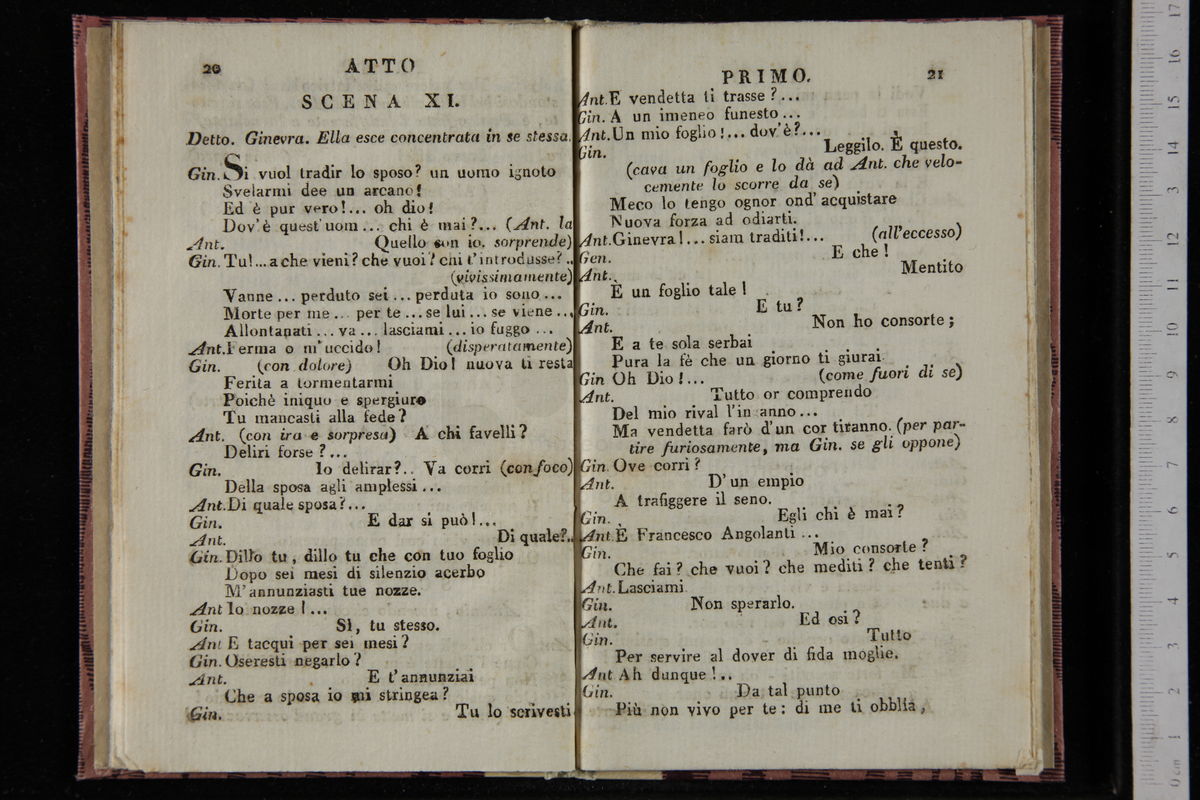 20 ATTO
SCENA XI.
Detto. Ginevra. Ella esce concentrata in se stessa.
Gin. Si vuol tradir lo sposo? un uomo ignoto
Svelarmi dee un arcano!
Ed è pur vero!... oh dio!
Dov'è quest'uom... chi è mai?... (Ant. la
Ant. Quello son io. sorprende)
Gin. Tu!...a che vieni? che vuoi? chi t'introdusse?..
(vivissimamente)
Vanne... perduto sei... perduta io sono...
Morte per me... per te... se lui... se viene...
Allontanati... va... lasciami... io fuggo...
Ant. Ferma o m'uccido! (disperatamente)
Gin. (con dolore) Oh Dio! nuova ti resta
Ferita a tormentarmi
Poichè iniquo e spergiuro
Tu mancasti alla fede?
Ant. (con ira e sorpresa) A chi favelli?
Deliri forse?...
Gin. Io delirar?.. Va corri (con foco)
Della sposa agli amplessi...
Ant. Di quale sposa?...
Gin. E dar si può!...
Ant. Di quale?..
Gin. Dillo tu, dillo tu che con tuo foglio
Dopo sei mesi di silenzio acerbo
M'annunziasti tue nozze.
Ant Io nozze!...
Gin. Sì, tu stesso.
Ant E tacqui per sei mesi?
Gin. Oseresti negarlo?
Ant. E t'annunziai
Che a sposa io mi stringea?
Gin. Tu lo scrivesti
PRIMO. 21
Ant. E vendetta ti trasse?...
Gin. A un imeneo funesto...
Ant. Un mio foglio!... dov'è?...
Gin. Leggilo. È questo.
(cava un foglio e lo dà ad Ant. che velo-
cemente lo scorre da se)
Meco lo tengo ognor ond'acquistare
Nuova forza ad odiarti.
Ant. Ginevra!... siam traditi!... (all'eccesso)
Gen. E che!
Ant.. Mentito
E un foglio tale!
Gin. E tu?
Ant. Non ho consorte;
E a te sola serbai
Pura la fè che un giorno ti giurai.
Gin Oh Dio!... (come fuori di se)
Ant. Tutto or comprendo
Del mio rival l'in anno...
Ma vendetta farò d'un cor tiranno. (per par-
tire furiosamente, ma Gin. se gli oppone)
Gin. Ove corri?
Ant. D'un empio
A trafiggere il seno.
Gin. Egli chi è mai?
Ant. È Francesco Angolanti...
Gin. Mio consorte?
Che fai? che vuoi? che mediti? che tenti?
Ant. Lasciami
Gin. Non sperarlo.
Ant. Ed osi?
Gin. Tutto
Per servire al dover di fida moglie.
Ant Ah dunque!..
Gin. Da tal punto
Più non vivo per te: di me ti obblìa,